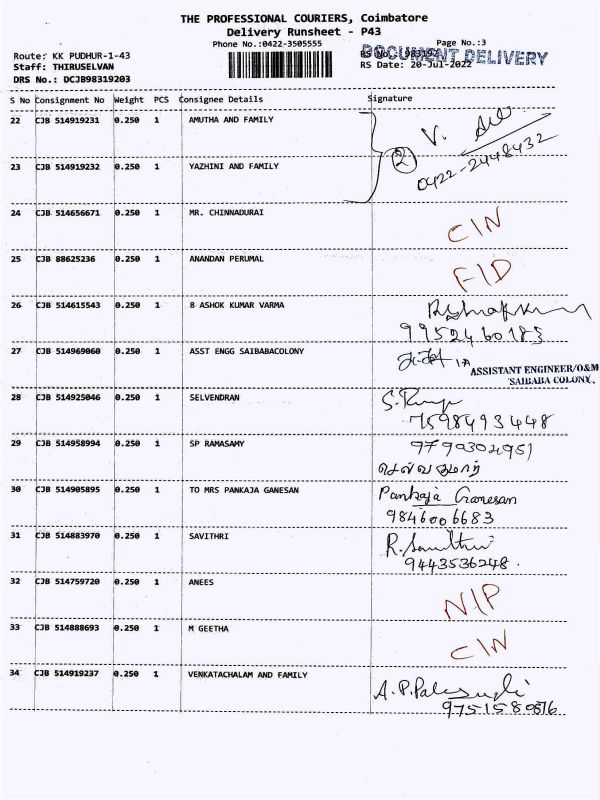 THE PROFESSIONAL COURIERS, Coimbatore
Delivery Runsheet - P43
Phone No.:0422-3505555
Page No.:3
DOCUMENT DELIVERY
Route: KK PUDHUR-1-43
Staff: THIRUSELVAN
RS Date: 20-Jul-2022
DRS No.: DCJB98319203
S No Consignment No Weight PCS Consignee Details Signature
22 CJB 514919231 0.250 1 AMUTHA AND FAMILY
2 V.
0422-2448432
23 CJB 514919232 0.250 1 YAZHINI AND FAMILY
24 CJB 514656671 0.250 1 MR. CHINNADURAI
C/N
25 CJB 88625236 0.250 1 ANANDAN PERUMAL
F/D
26 CJB 514615543 0.250 1 B ASHOK KUMAR VARMA
9952460183
27 CJB 514969060 0.250 1 ASST ENGG SAIBABACOLONY
ASSISTANT ENGINEER/O&M
SAIBABA COLONY.
28 CJB 514925046 0.250 1 SELVENDRAN
7598493448
29 CJB 514958994 0.250 1 SP RAMASAMY
9790304951
செல்வகுமார்
30 CJB 514905895 0.250 1 TO MRS PANKAJA GANESAN
Pankaja Ganesan
9846006683
31 CJB 514883970 0.250 1 SAVITHRI
R. Savithri
9443536248.
32 CJB 514759720 0.250 1 ANEES
N/P
33 CJB 514888693 0.250 1 M GEETHA
C/N
34 CJB 514919237 0.250 1 VENKATACHALAM AND FAMILY
A.P.